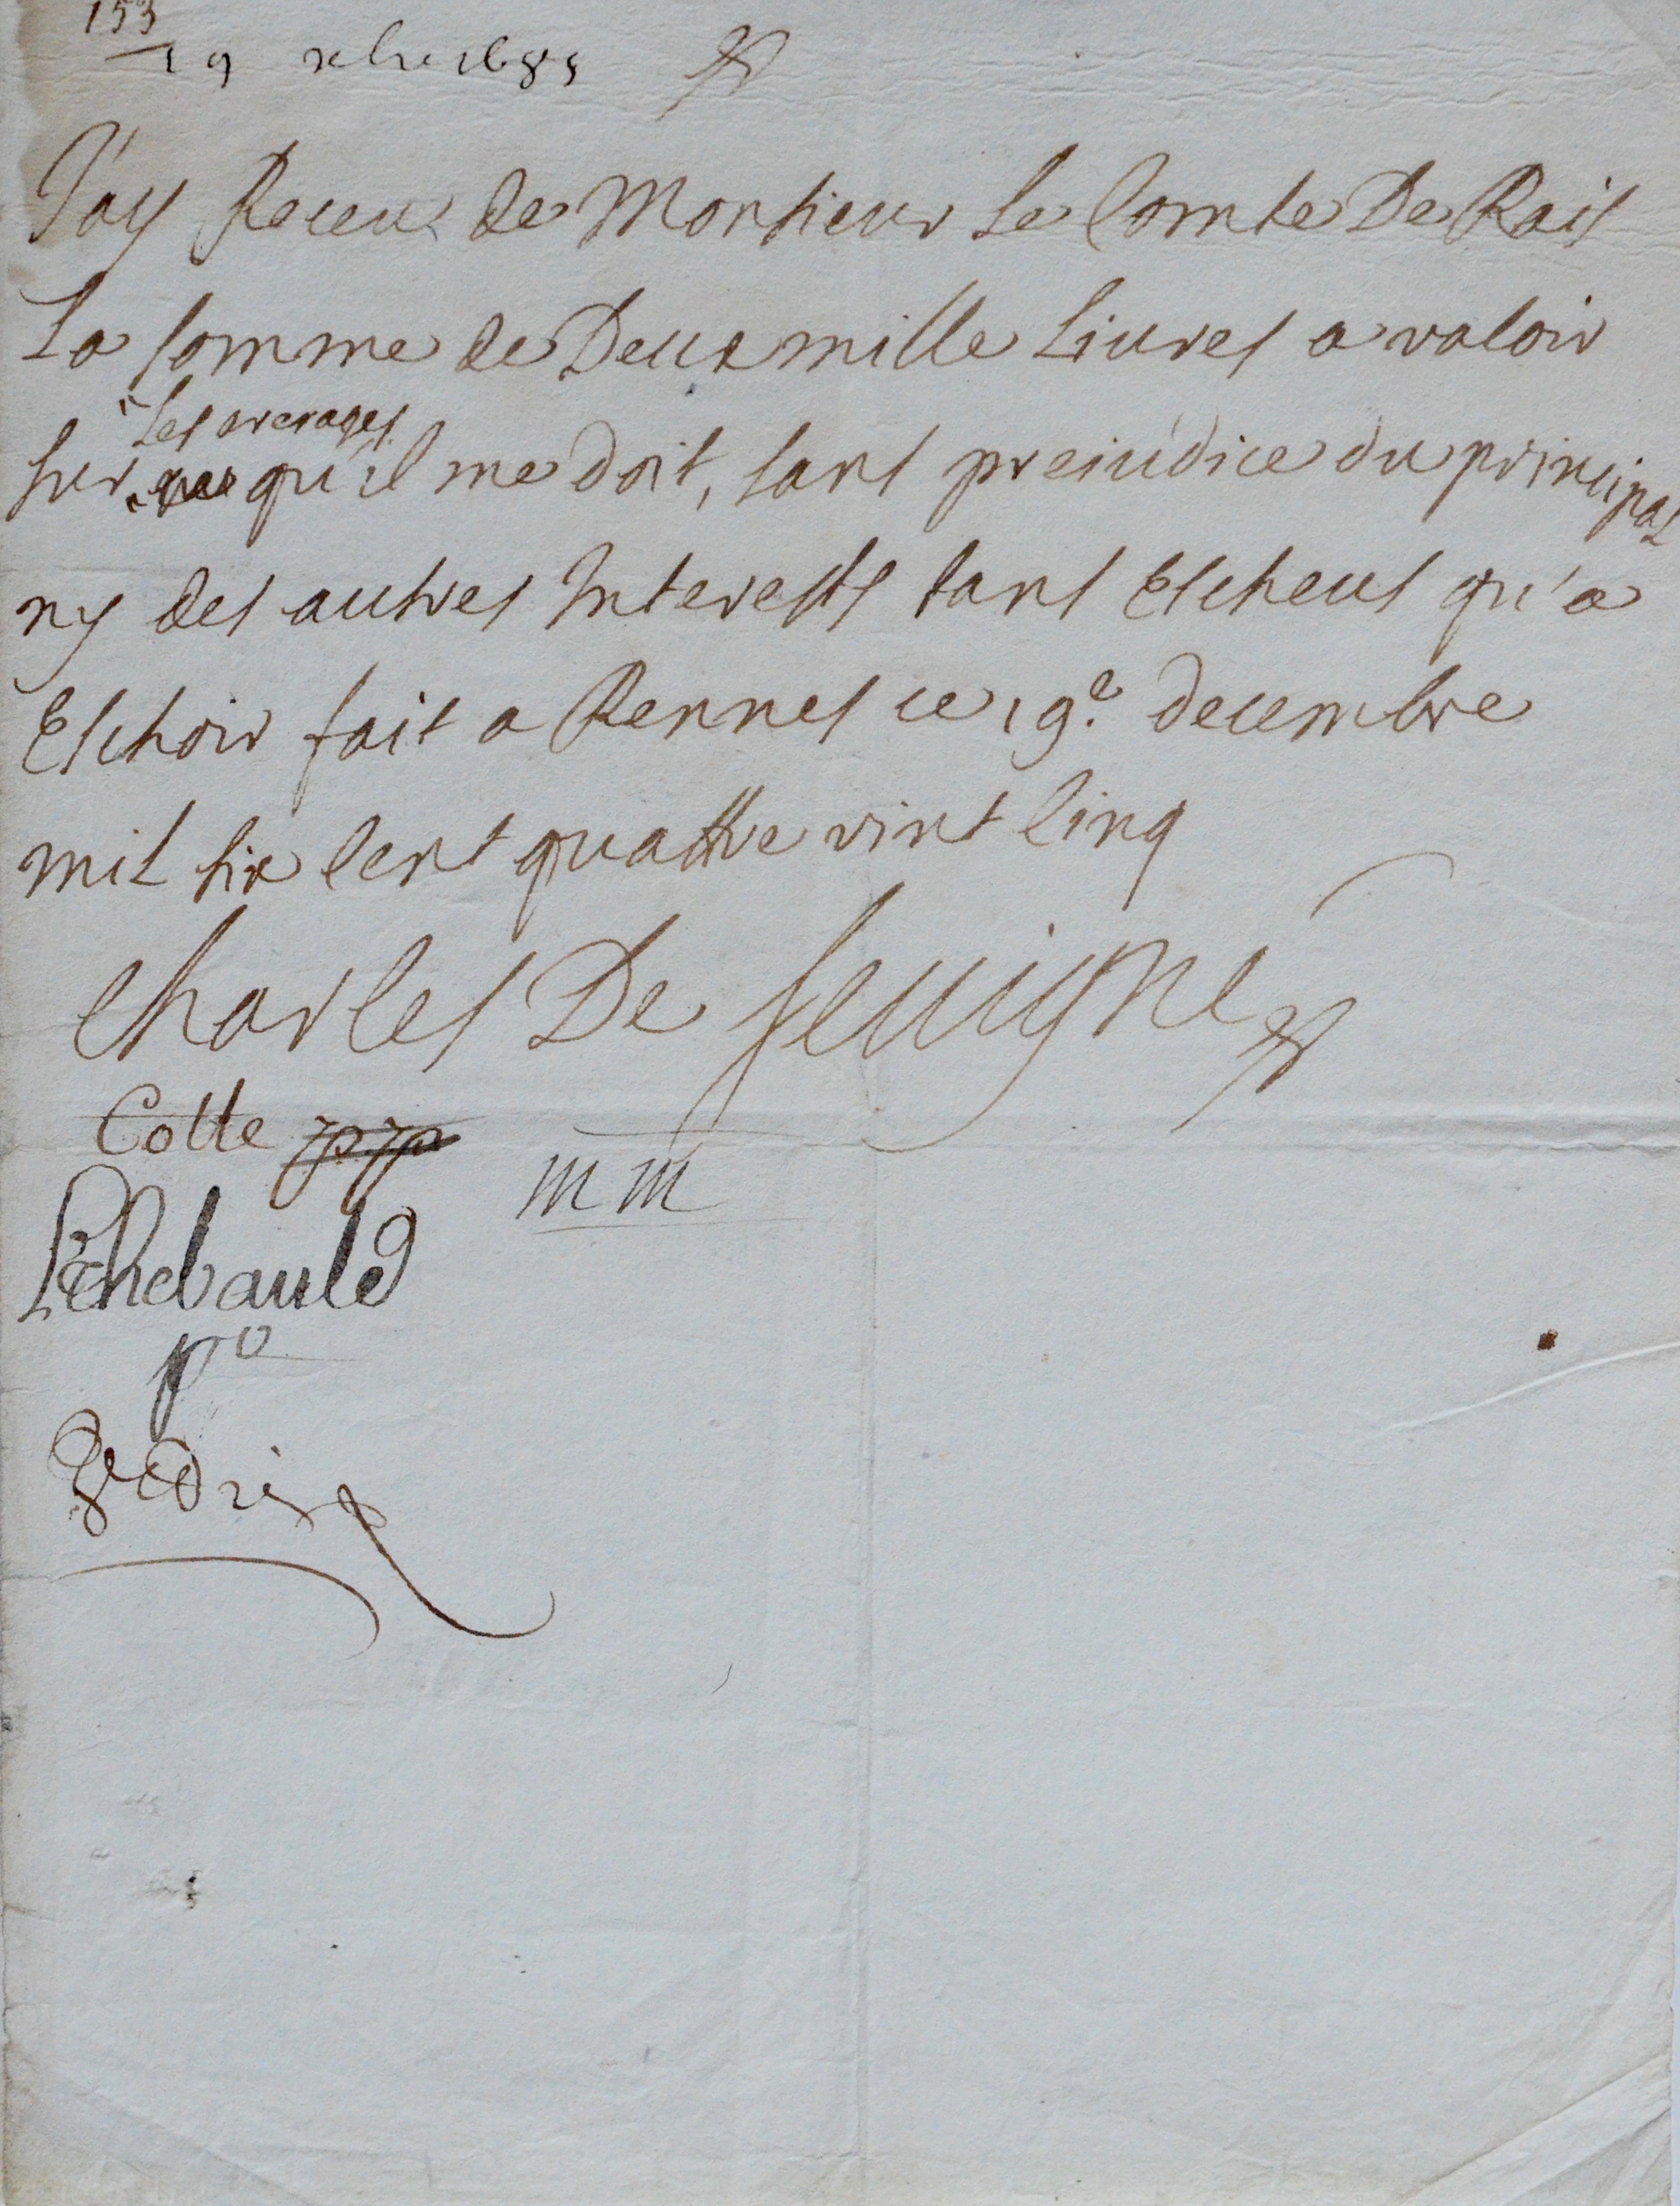 153
19 xbre 1685
J'ay Receu de Monsieur Le Comte De Rais
La somme de Deux mille Livres a valoir
Les arerages
sur qu'il me doit, sans preiudice du principal
ny des autres Interests tans Escheus qu'a
Eschoir fait a Rennes ce 19e decembre
mil six cent quattre vint cinq
Charles De Sevigne
Cotte
m m